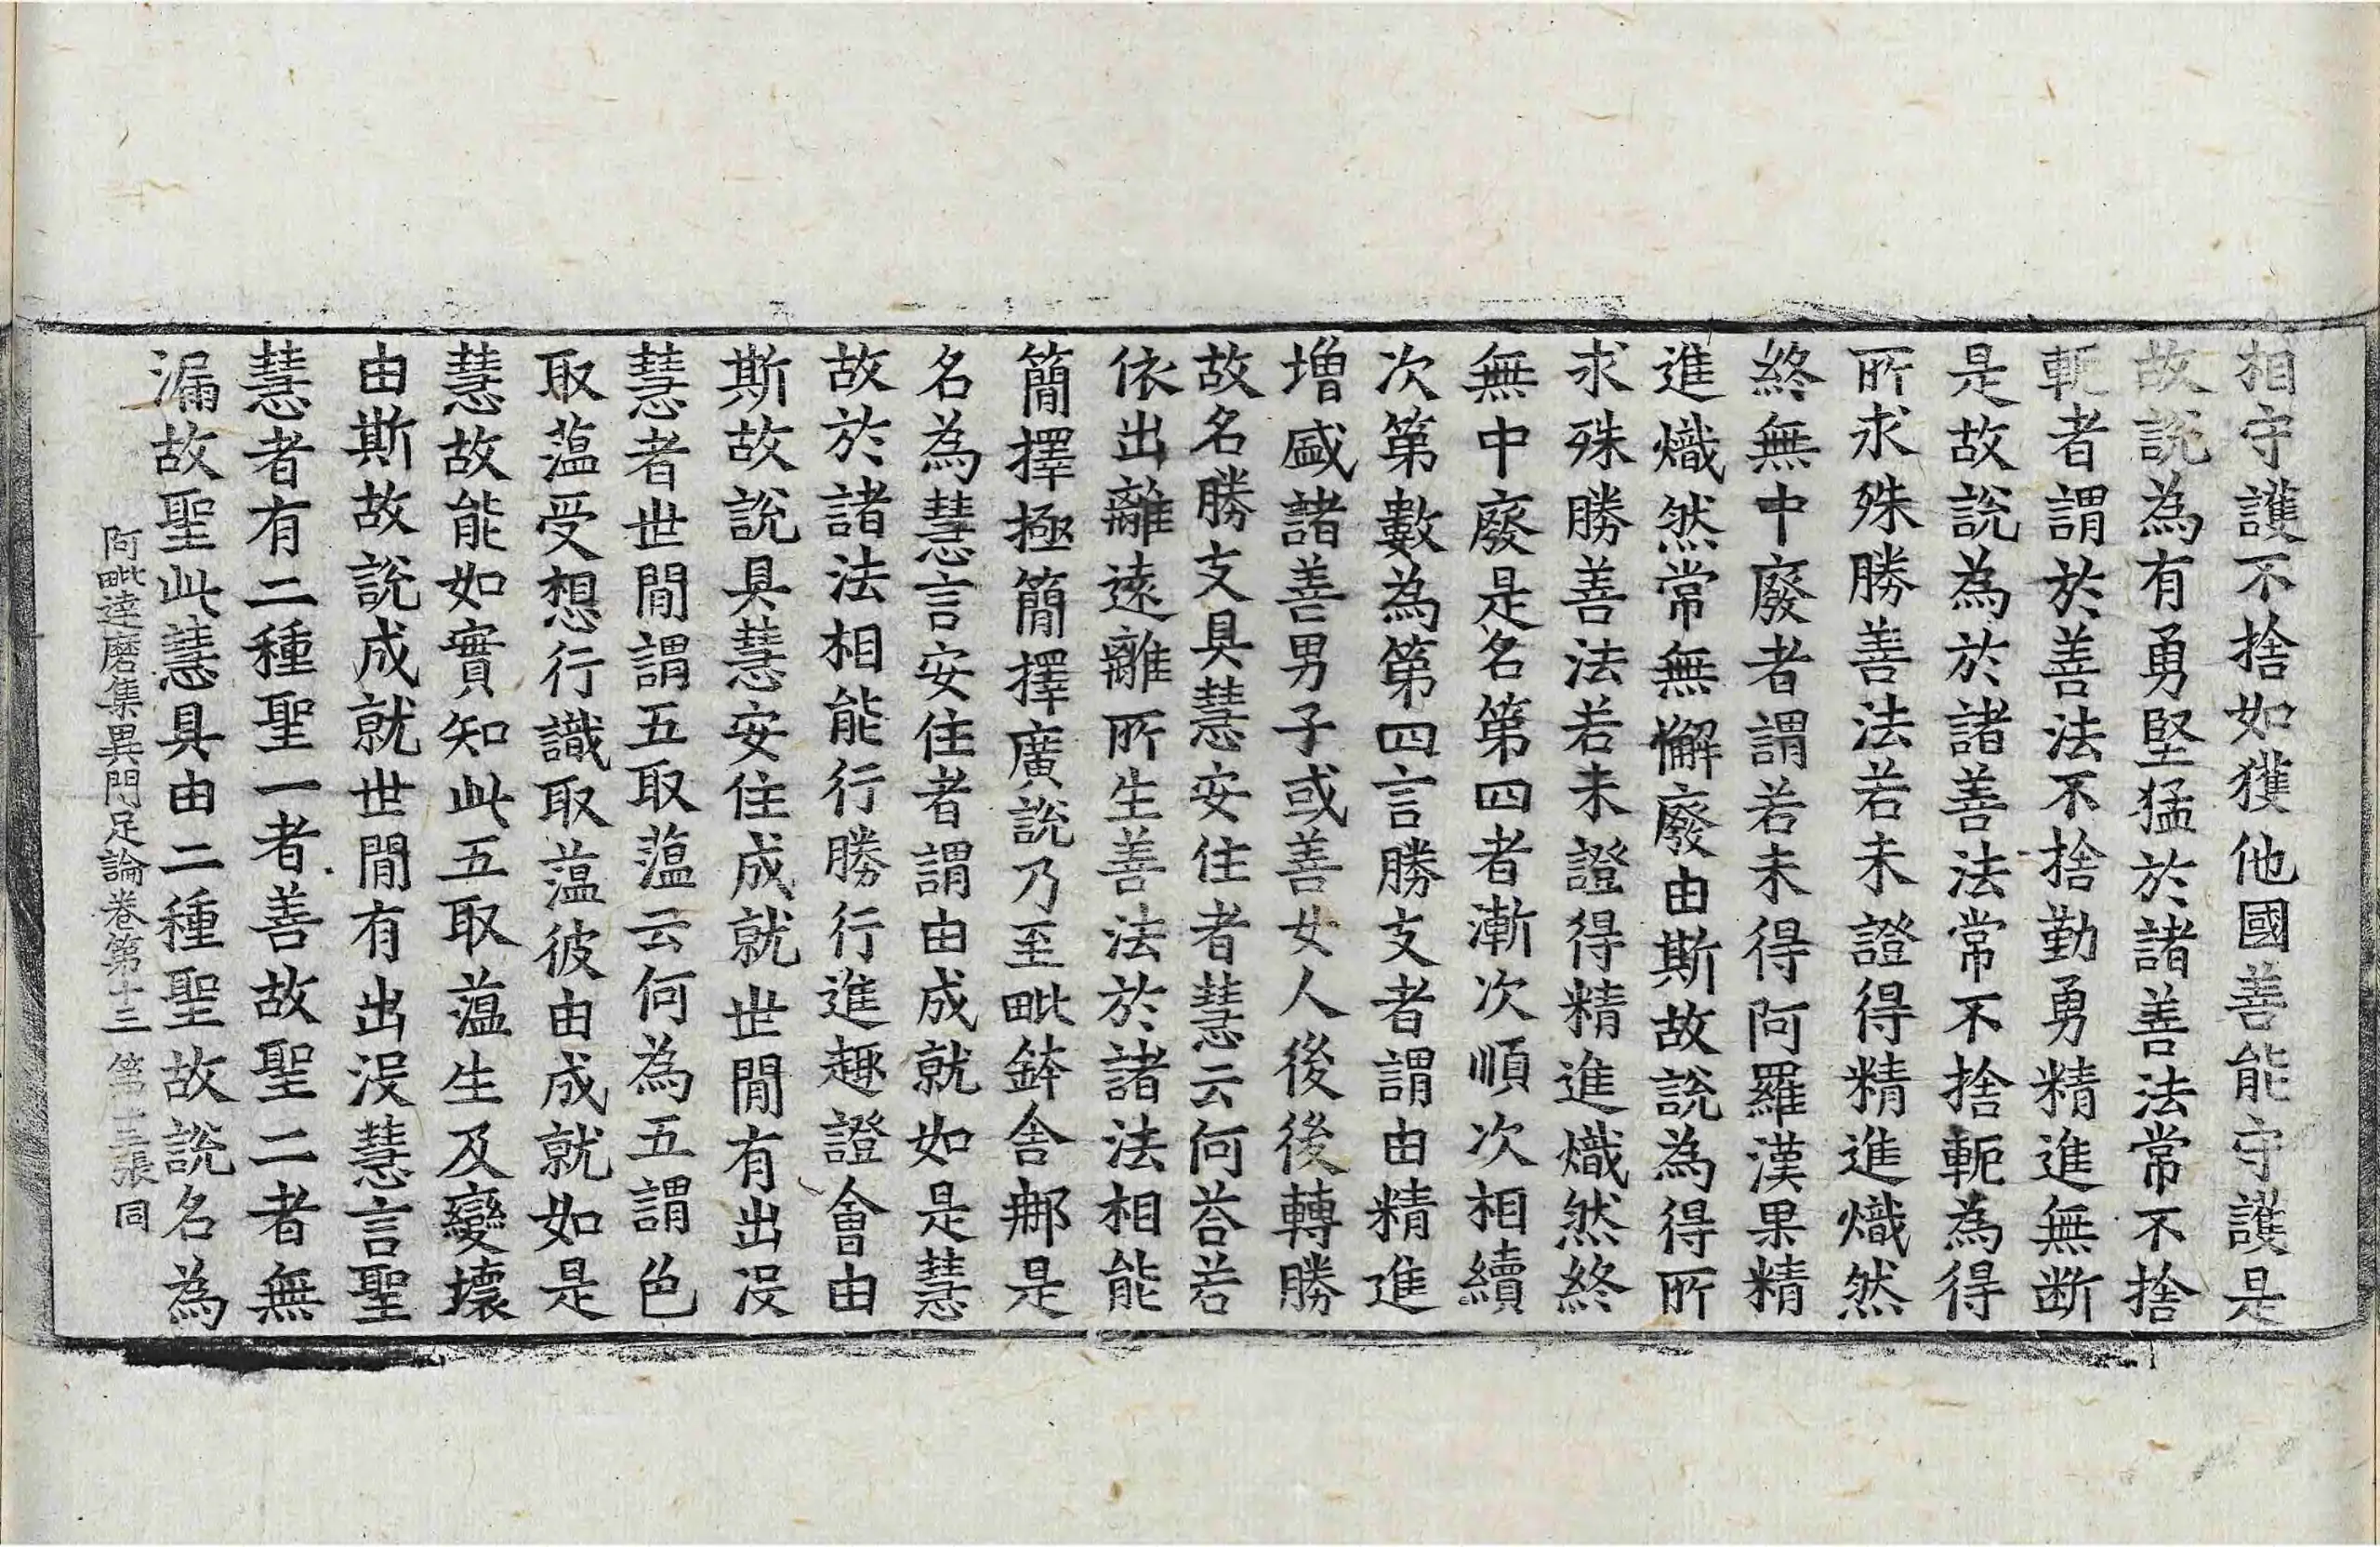 相守護不捨如獲他國善能守護是
故說為有勇堅猛於諸善法常不捨
軛者謂於善法不捨勤勇精進無断
是故說為於諸善法常不捨軛為得
所求殊勝善法若未證得精進熾然
終無中廢者謂若未得阿羅漢果精
進熾然常無懈廢由斯故說為得所
求殊勝善法若未證得精進熾然終
無中廢是名第四者漸次順次相續
次第數為第四言勝支者謂由精進
增盛諸善男子或善女人後後轉勝
故名勝支具慧安住者慧云何荅若
依出離遠離所生善法於諸法相能
簡擇極簡擇廣說乃至毗鉢舍那是
名為慧言安住者謂由成就如是慧
故於諸法相能行勝行進趣證會由
斯故說具慧安住成就世間有出沒
慧者世間謂五取蕰云何為五謂色
取蕰受想行識取蕰彼由成就如是
慧故能如實知此五取蕰生及變壞
由斯故說成就世間有出沒慧言聖
慧者有二種聖一者善故聖二者無
漏故聖此慧具由二種聖故說名為
阿毗達磨集異門足論卷第十三 第十三張 同